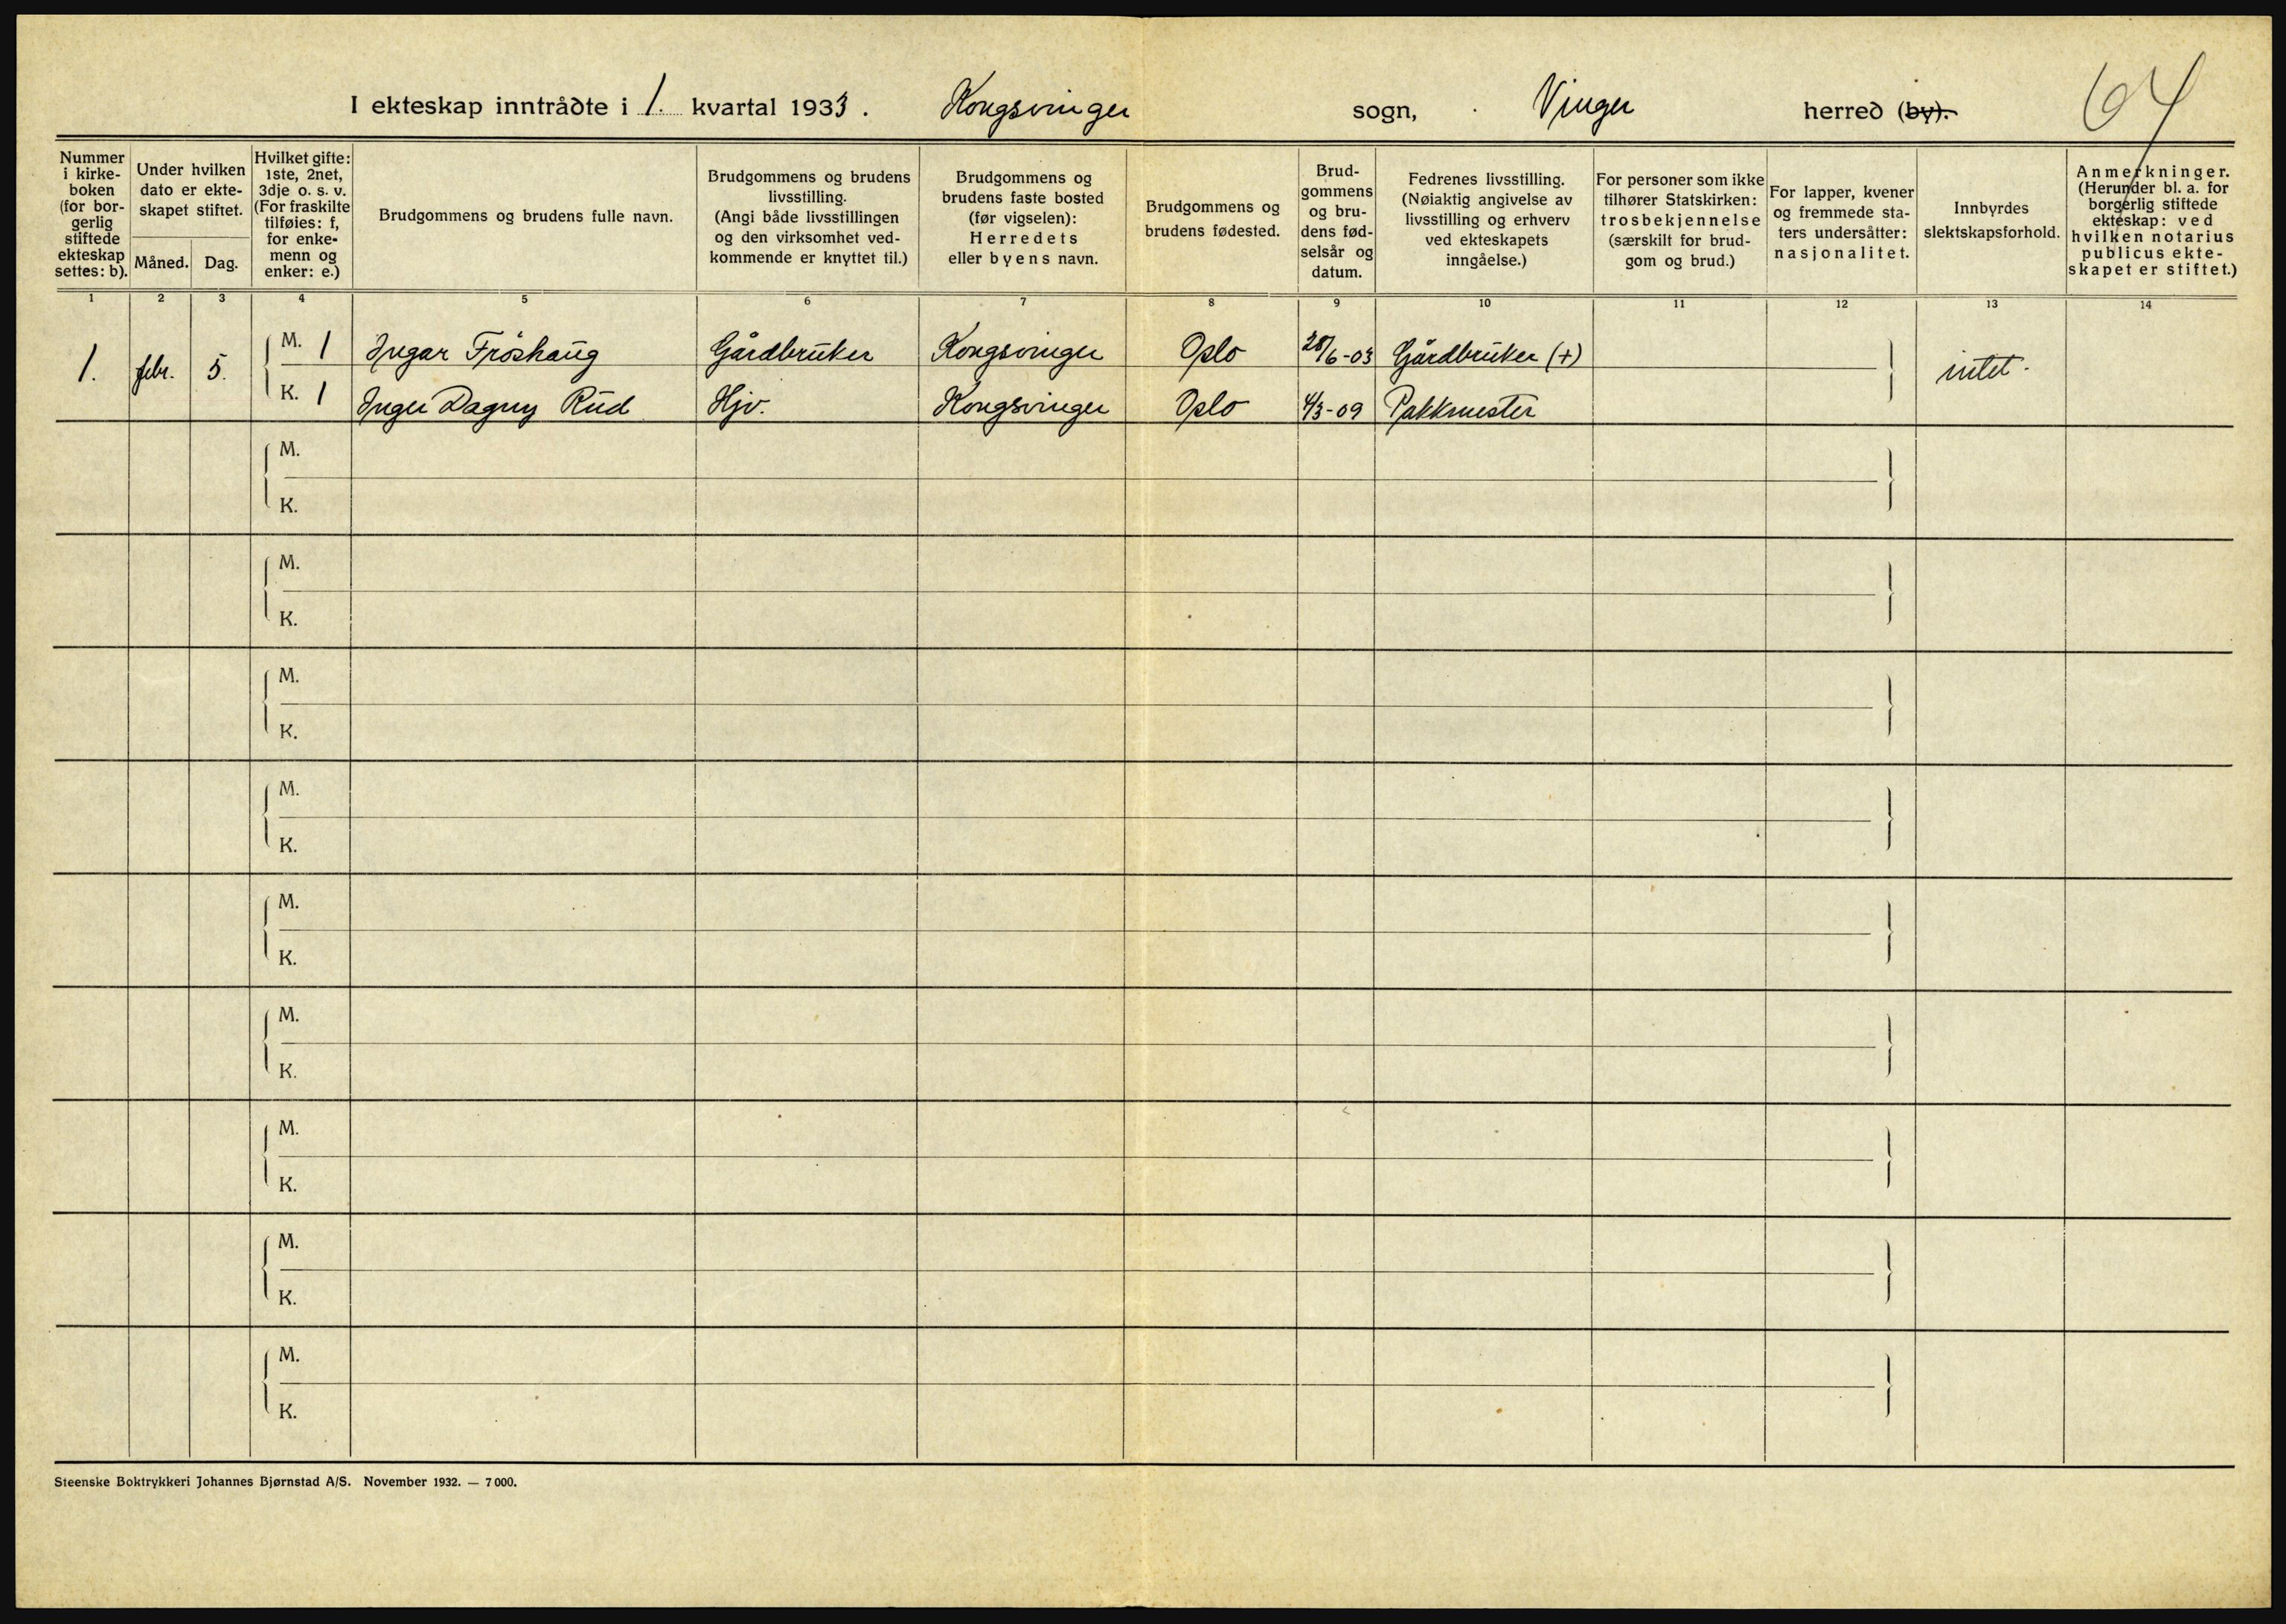 64
I ekteskap inntrådte i 1. kvartal 1933. Kongsvinger sogn, Vinger herred (by).
Nummer i kirke-boken (for bor-gerlig stiftede ekteskap settes: b).
Under hvilken dato er ekte-skapet stiftet.
Måned. Dag.
Hvilket gifte: 1ste, 2net, 3dje o. s. v. (For fraskilte tilføies: f, for enke-menn og enker: e.)
Brudgommens og brudens fulle navn.
Brudgommens og brudens livsstilling. (Angi både livsstillingen og den virksomhet ved-kommende er knyttet til.)
Brudgommens og brudens faste bosted (før vigselen): Herredets eller byens navn.
Brudgommens og brudens fødested.
Brud-gommens og bru-dens fød-selsår og datum.
Fedrenes livsstilling. (Nøiaktig angivelse av livsstilling og erhverv ved ekteskapets inngåelse.)
For personer som ikke tilhører Statskirken: trosbekjennelse (særskilt for brud-gom og brud.)
For lapper, kvener og fremmede sta-ters undersåtter: nasjonalitet.
Innbyrdes slektskapsforhold.
Anmerkninger. (Herunder bl. a. for borgerlig stiftede ekteskap: ved hvilken notarius publicus ekte-skapet er stiftet.)
1 2 3 4 5 6 7 8 9 10 11 12 13 14
1. febr. 5. M. 1 Ingar Fröshaug Gårdbruker Kongsvinger Oslo 28/6-03 Gårdbruker (+) intet.
K. 1 Inger Dagny Rud Hjv. Kongsvinger Oslo 4/3-09 Pakkmester
M.
K.
M.
K.
M.
K.
M.
K.
M.
K.
M.
K.
M.
K.
M.
K.
M.
K.
Steenske Boktrykkeri Johannes Bjørnstad A/S. November 1932. — 7 000.